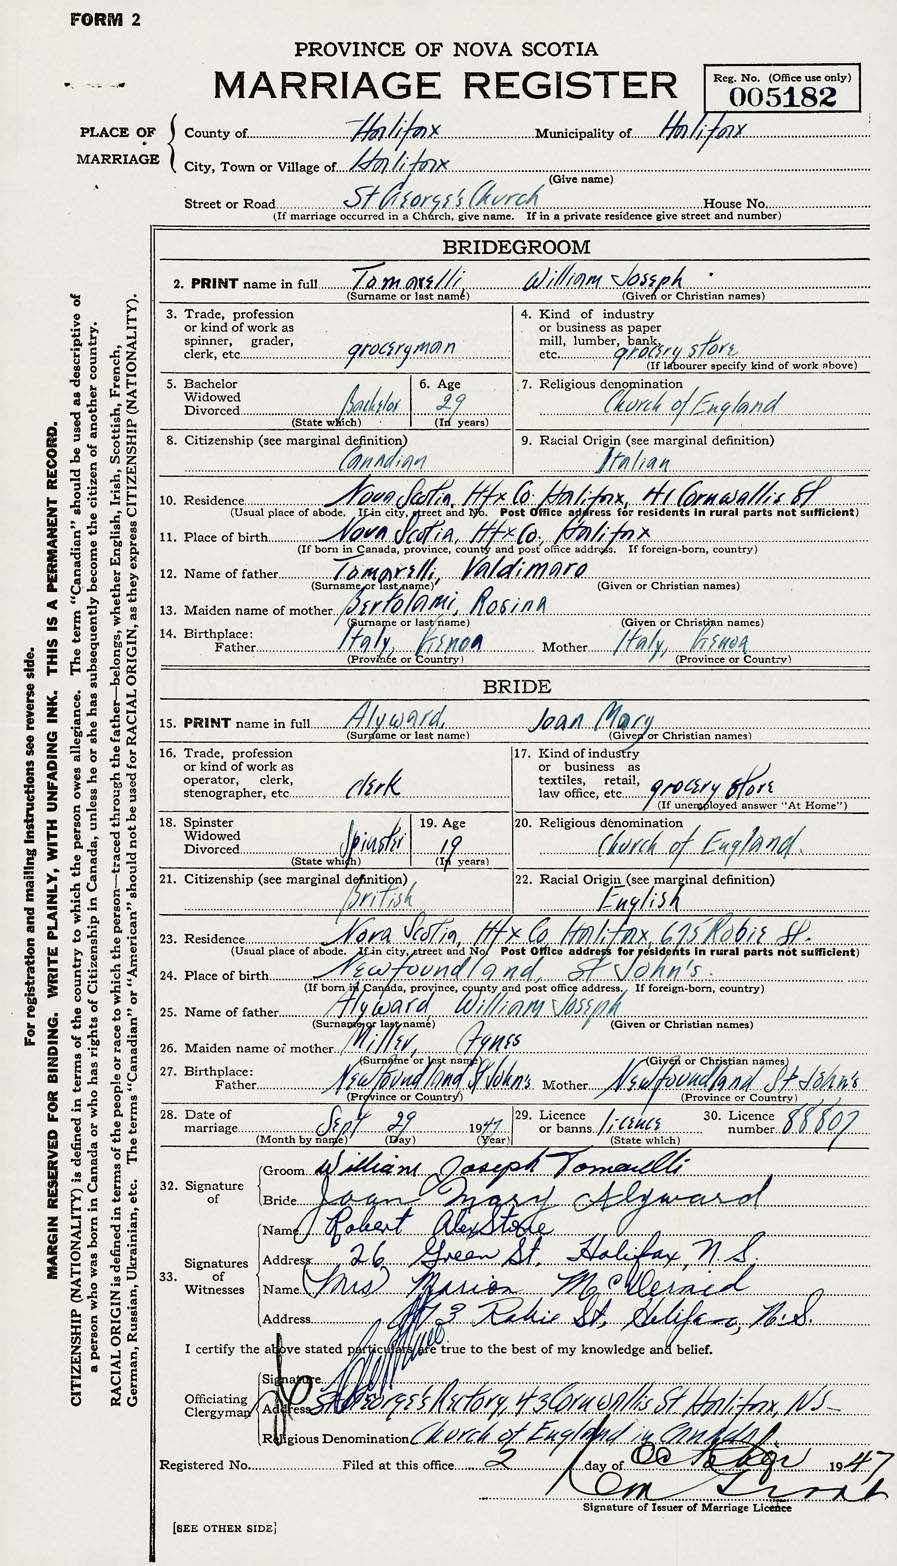 FORM 2
PROVINCE OF NOVA SCOTIA
MARRIAGE REGISTER
Reg. No. (Office use only)
005182
PLACE OF MARRIAGE
County of Halifax Municipality of Halifax
City, Town or Village of Halifax
(Give name)
Street or Road St George's Church House No.
(If marriage occurred in a Church, give name. If in a private residence give street and number)
BRIDEGROOM
2. PRINT name in full Tomarelli, William Joseph
(Surname or last name) (Given or Christian names)
3. Trade, profession or kind of work as spinner, grader, clerk, etc. groceryman
4. Kind of industry or business as paper mill, lumber, bank, etc. grocery store
(If labourer specify kind of work above)
5. Bachelor Widowed Divorced Bachelor
(State which)
6. Age 29
(In years)
7. Religious denomination
Church of England
8. Citizenship (see marginal definition)
Canadian
9. Racial Origin (see marginal definition)
Italian
10. Residence Nova Scotia, Hfx Co. Halifax, 41 Cornwallis St
(Usual place of abode. If in city, street and No. Post Office address for residents in rural parts not sufficient)
11. Place of birth Nova Scotia, Hfx Co, Halifax
(If born in Canada, province, county and post office address. If foreign-born, country)
12. Name of father Tomarelli, Valdimaro
(Surname or last name) (Given or Christian names)
13. Maiden name of mother Bertolami, Rosina
(Surname or last name) (Given or Christian names)
14. Birthplace:
Father Italy, Mother Italy,
(Province or Country) (Province or Country)
BRIDE
15. PRINT name in full Alyward, Joan Mary
(Surname or last name) (Given or Christian names)
16. Trade, profession or kind of work as operator, clerk, stenographer, etc clerk
17. Kind of industry or business as textiles, retail, law office, etc grocery store
(If unemployed answer "At Home")
18. Spinster Widowed Divorced Spinster
(State which)
19. Age 19
(In years)
20. Religious denomination
Church of England.
21. Citizenship (see marginal definition)
British
22. Racial Origin (see marginal definition)
English
23. Residence Nova Scotia, Hfx Co, Halifax, 675 Robie St.
(Usual place of abode. If in city, street and No. Post Office address for residents in rural parts not sufficient)
24. Place of birth Newfoundland, St John's.
(If born in Canada, province, county and post office address. If foreign-born, country)
25. Name of father Alyward William Joseph
(Surname or last name) (Given or Christian names)
26. Maiden name of mother Miller, Agnes
(Surname or last name) (Given or Christian names)
27. Birthplace:
Father Newfoundland St John's Mother Newfoundland St John's
(Province or Country) (Province or Country)
28. Date of marriage Sept 29 1947
(Month by name) (Day) (Year)
29. Licence or banns licence
(State which)
30. Licence number 88807
32. Signature of
Groom William Joseph Tomarelli
Bride Joan Mary Alyward
33. Signatures of Witnesses
Name Robert Alex Stone
Address 26 Green St, Halifax, N.S.
Name Mrs Marion McDermid
Address Robie St, Halifax, N.S.
I certify the above stated particulars are true to the best of my knowledge and belief.
Officiating Clergyman
Signature
Address St George's Rectory, 43 Cornwallis St Halifax, N.S
Religious Denomination Church of England in Canada
Registered No. Filed at this office 2 day of October 1947
Signature of Issuer of Marriage Licence
[SEE OTHER SIDE]
For registration and mailing instructions see reverse side.
MARGIN RESERVED FOR BINDING. WRITE PLAINLY, WITH UNFADING INK. THIS IS A PERMANENT RECORD.
CITIZENSHIP (NATIONALITY) is defined in terms of the country to which the person owes allegiance. The term "Canadian" should be used as descriptive of
a person who was born in Canada or who has rights of Citizenship in Canada, unless he or she has subsequently become the citizen of another country.
RACIAL ORIGIN is defined in terms of the people or race to which the person—traced through the father—belongs, whether English, Irish, Scottish, French,
German, Russian, Ukrainian, etc. The terms "Canadian" or "American" should not be used for RACIAL ORIGIN, as they express CITIZENSHIP (NATIONALITY).